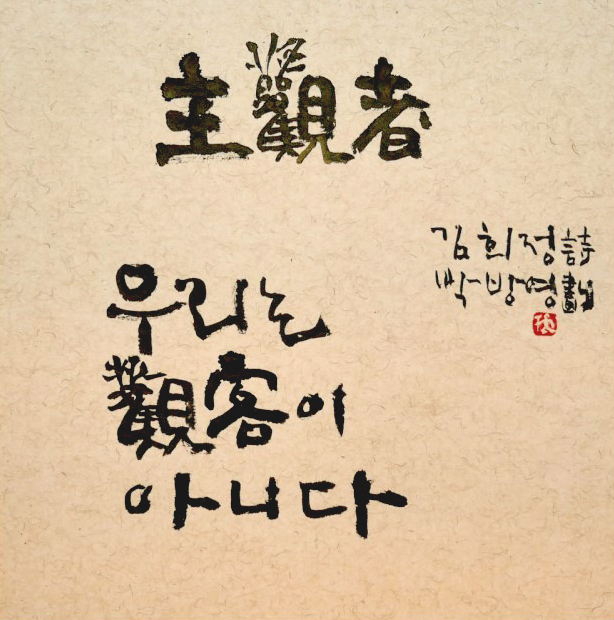 主觀者
김희정詩
박방영劃
우리는
觀客이
아니다